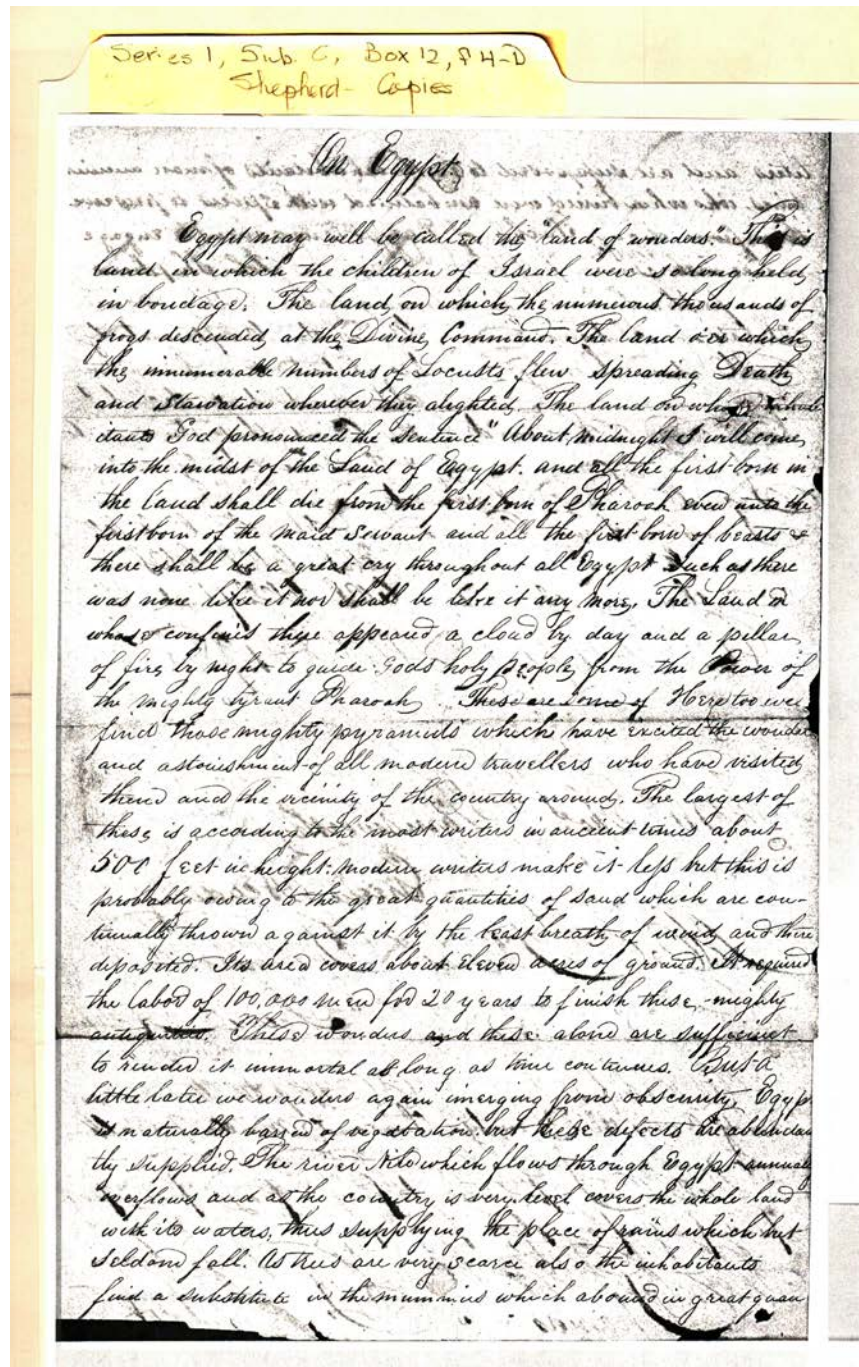 Series 1, Sub. C, Box 12, f 4-D
Shepherd - Copies
On Egypt.
Egypt may well be called the "land of wonders." This is
land in which the children of Israel were so long held
in bondage. The land on which the numerous thousands of
frogs descended at the Divine Command. The land o'er which
the innumerable numbers of Locusts flew spreading Death
and Starvation wherever they alighted. The land on whose inhab
itants God pronounced the sentence "About midnight I will come
into the midst of the Land of Egypt. and all the first-born in
the land shall die from the first born of Pharoah even unto the
firstborn of the maid servant and all the first born of beasts &
there shall be a great cry throughout all Egypt such as there
was none like it nor shall be like it any more. The Land in
whose confines there appeared a cloud by day and a pillar
of fire by night to guide Gods holy people from the Power of
the mighty tyrant Pharoah. These are some of Here too we
find those mighty pyramids which have excited the wonder
and astonishment of all modern travellers who have visited
them and the vicinity of the country around. The largest of
these is according to the most writers in ancient times about
500 feet in height: modern writers make it less but this is
probably owing to the great quantities of sand which are con-
tinually thrown against it by the least breath of wind and there
deposited. Its area covers about Eleven acres of ground. It required
the labor of 100,000 men for 20 years to finish these mighty
These wonders and these alone are sufficient
to render it immortal as long as time continues. But a
little later we wonders again imerging from obscurity. Egyp
is naturally barren of vegetation but these defects are abundan
tly supplied. The river Nile which flows through Egypt annualy
overflows and as the country is very level covers the whole land
with its waters, thus supplying the place of rains which but
Seldom fall. As trees are very scarce also the inhabitants
find a substitute in the mummies which abound in great quan